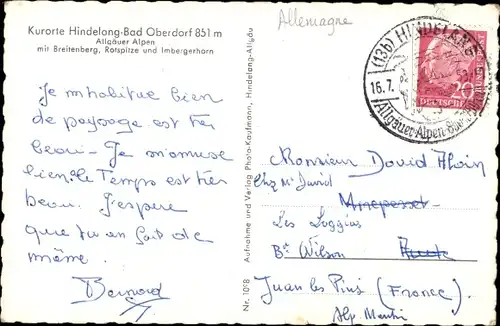 Kurorte Hindelang-Bad Oberdorf 851 m
Allgäuer Alpen
mit Breitenberg, Rotspitze und Imbergerhorn
Allemagne
(13b) HINDELANG
16.7.
Allgäuer Alpen
20
DEUTSCHE
Je m'habitue bien
de paysage est très
beau - Je m'amuse
bien le Temps est très
beau. J'espère
que tu en fait de
même.
Bernard
Nr. 1018 Aufnahme und Verlag Photo-Kaufmann, Hindelang-Allgäu
Monsieur David Alain
Chez Mr David
Les Loggias
Bt Wilson
Juan les Pins (France)
Alp. Marit